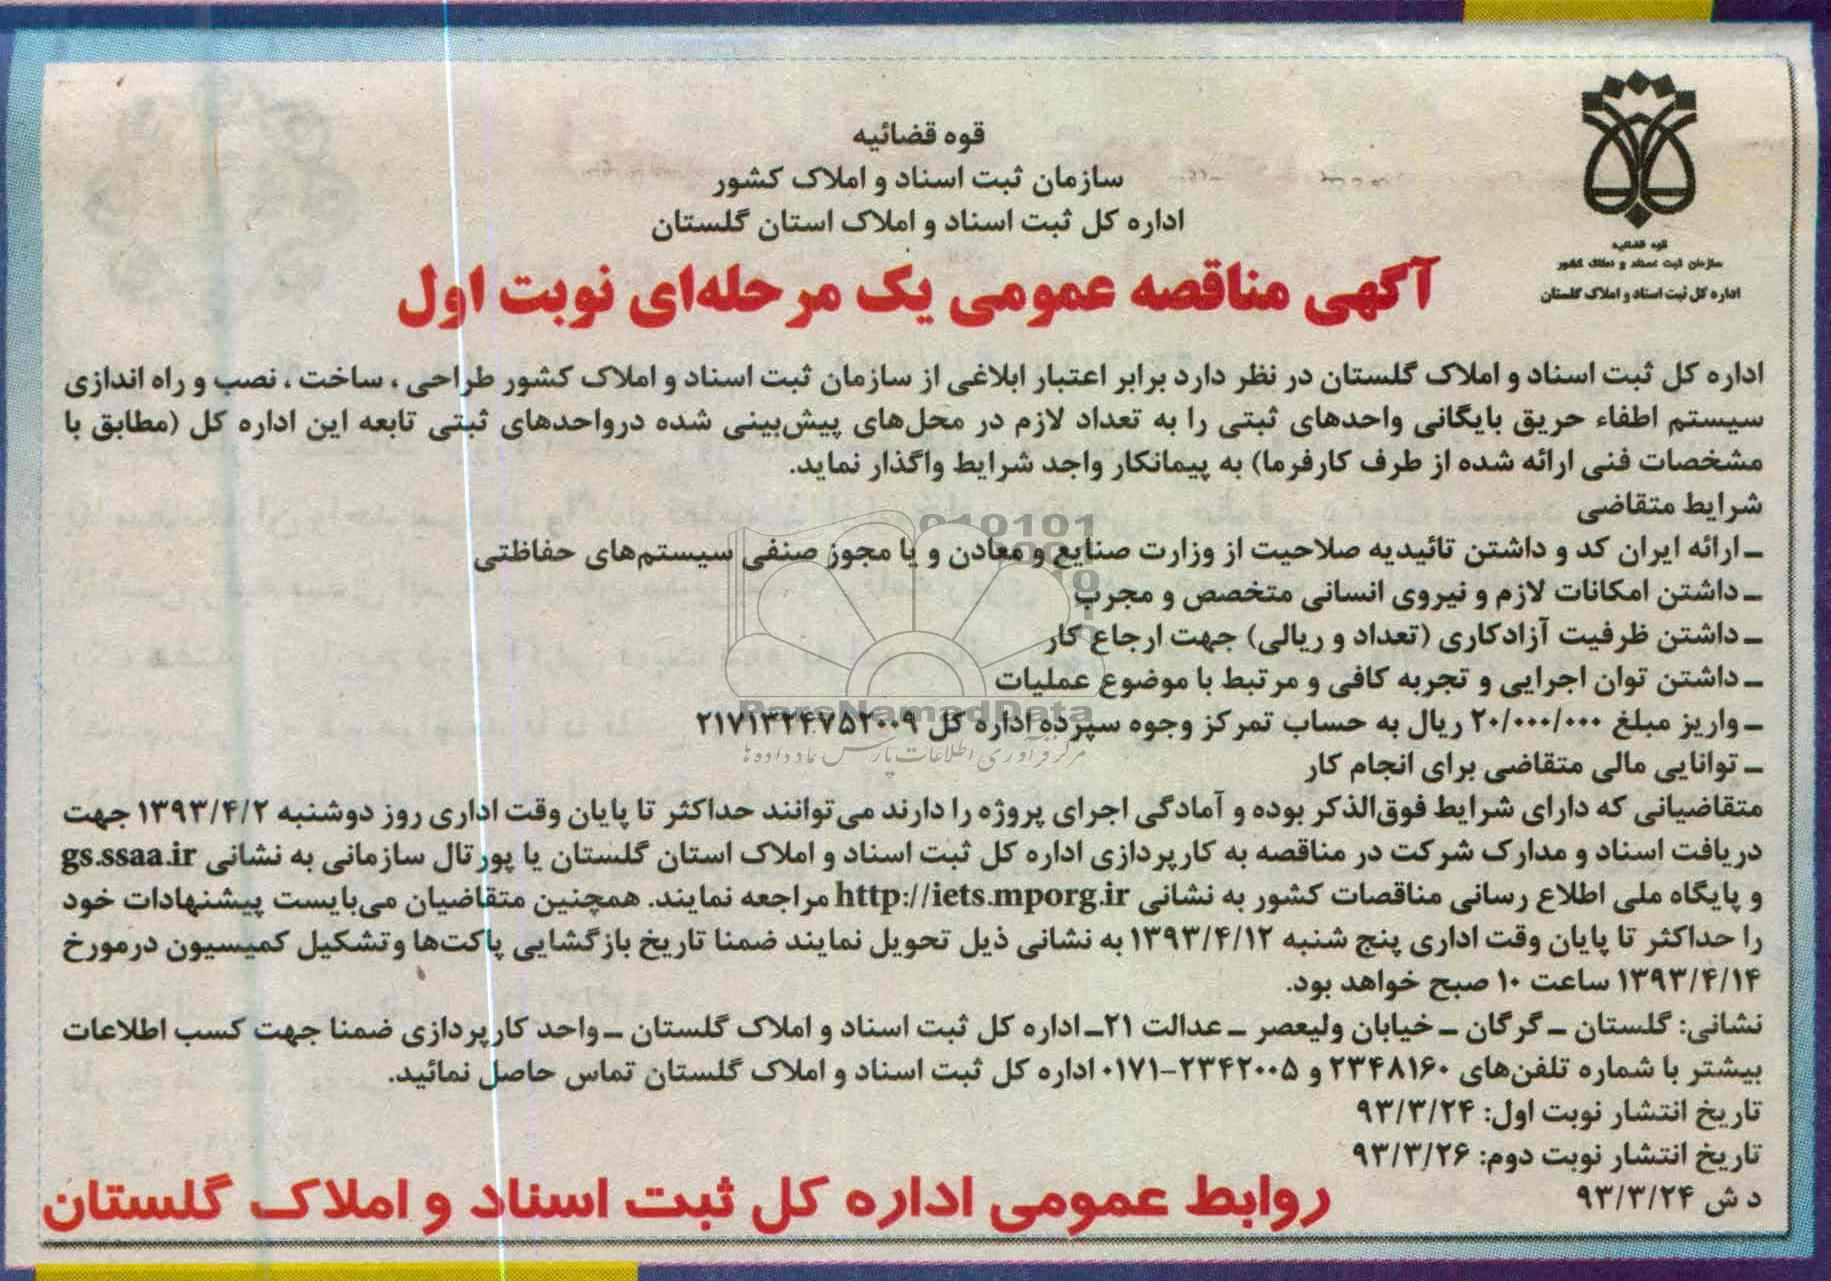 قوه قضائیه
سازمان ثبت اسناد و املاک کشور
اداره کل ثبت اسناد و املاک استان گلستان
قوه قضائیه
سازمان ثبت اسناد و املاک کشور
اداره کل ثبت اسناد و املاک گلستان
آگهی مناقصه عمومی یک مرحله‌ای نوبت اول
اداره کل ثبت اسناد و املاک گلستان در نظر دارد برابر اعتبار ابلاغی از سازمان ثبت اسناد و املاک کشور طراحی ، ساخت ، نصب و راه اندازی
سیستم اطفاء حریق بایگانی واحدهای ثبتی را به تعداد لازم در محل‌های پیش‌بینی شده درواحدهای ثبتی تابعه این اداره کل (مطابق با
مشخصات فنی ارائه شده از طرف کارفرما) به پیمانکار واجد شرایط واگذار نماید.
شرایط متقاضی
ـ ارائه ایران کد و داشتن تائیدیه صلاحیت از وزارت صنایع و معادن و یا مجوز صنفی سیستم‌های حفاظتی
ـ داشتن امکانات لازم و نیروی انسانی متخصص و مجرب
ـ داشتن ظرفیت آزادکاری (تعداد و ریالی) جهت ارجاع کار
ـ داشتن توان اجرایی و تجربه کافی و مرتبط با موضوع عملیات
ـ واریز مبلغ ۲۰/۰۰۰/۰۰۰ ریال به حساب تمرکز وجوه سپرده اداره کل ۲۱۷۱۳۲۴۷۵۲۰۰۹
ParsNamadData
مرکز فرآوری اطلاعات پارس نماد داده‌ها
ـ توانایی مالی متقاضی برای انجام کار
متقاضیانی که دارای شرایط فوق‌الذکر بوده و آمادگی اجرای پروژه را دارند می‌توانند حداکثر تا پایان وقت اداری روز دوشنبه ۱۳۹۳/۴/۲ جهت
دریافت اسناد و مدارک شرکت در مناقصه به کارپردازی اداره کل ثبت اسناد و املاک استان گلستان یا پورتال سازمانی به نشانی gs.ssaa.ir
و پایگاه ملی اطلاع رسانی مناقصات کشور به نشانی http://iets.mporg.ir مراجعه نمایند. همچنین متقاضیان می‌بایست پیشنهادات خود
را حداکثر تا پایان وقت اداری پنج شنبه ۱۳۹۳/۴/۱۲ به نشانی ذیل تحویل نمایند ضمنا تاریخ بازگشایی پاکت‌ها وتشکیل کمیسیون درمورخ
۱۳۹۳/۴/۱۴ ساعت ۱۰ صبح خواهد بود.
نشانی: گلستان ـ گرگان ـ خیابان ولیعصر ـ عدالت ۲۱ـ اداره کل ثبت اسناد و املاک گلستان ـ واحد کارپردازی ضمنا جهت کسب اطلاعات
بیشتر با شماره تلفن‌های ۲۳۴۸۱۶۰ و ۲۳۴۲۰۰۵-۰۱۷۱ اداره کل ثبت اسناد و املاک گلستان تماس حاصل نمائید.
تاریخ انتشار نوبت اول: ۹۳/۳/۲۴
تاریخ انتشار نوبت دوم: ۹۳/۳/۲۶
د ش ۹۳/۳/۲۴
روابط عمومی اداره کل ثبت اسناد و املاک گلستان